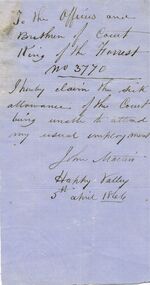 To the Officers and
Brethren of Court
King of the Forrest
No 3770
I hereby claim the sick
allowance of the Court
being unable to attend
my usual employment
John Martin
Happy Valley
5th april 1866